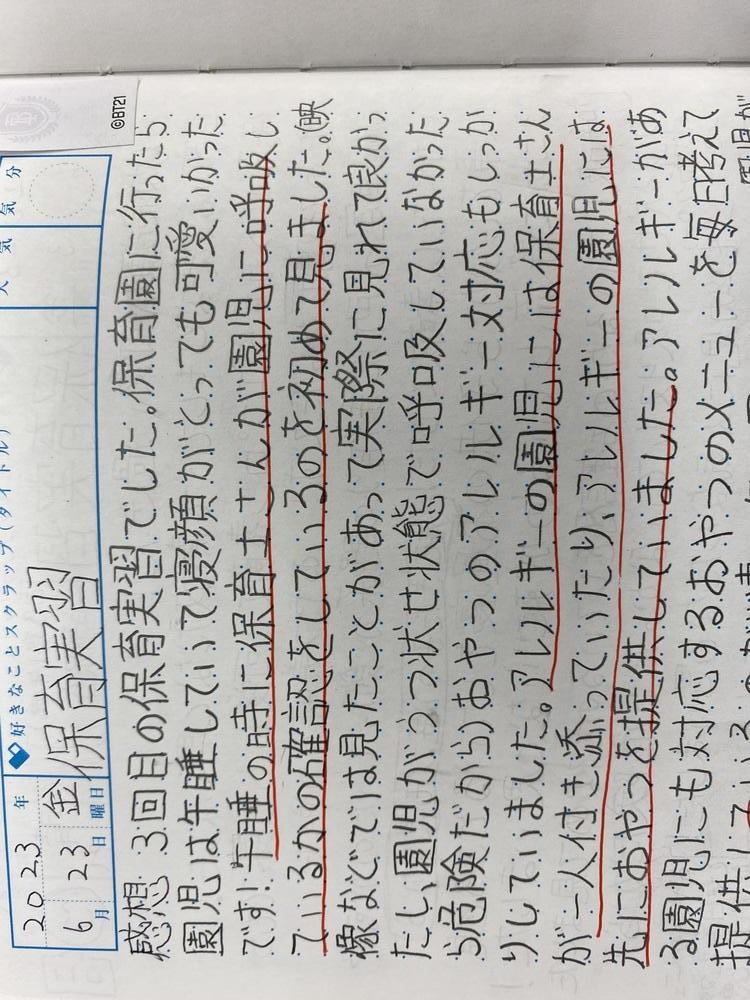 2023年 好きなことスクラップ(タイトル) 天気 気分
6月 23日 金曜日 保育実習
©BT21
感想 3回目の保育実習でした。保育園に行ったら
園児は午睡していて寝顔がとっても可愛いかった
です!午睡の時に保育士さんが園児に呼吸し
ているかの確認をしているのを初めて見ました。(映
像などでは見たことがあって実際に見れて良かっ
たし、園児がうつ状せ状態で呼吸していなかった
ら危険だから)おやつのアレルギー対応もしっか
りしていました。アレルギーの園児には保育士さん
が一人付き添っていたり、アレルギーの園児には
先におやつを提供していました。アレルギーがあ
る園児にも対応するおやつのメニューを毎日考えて
提供しているのが
園児が